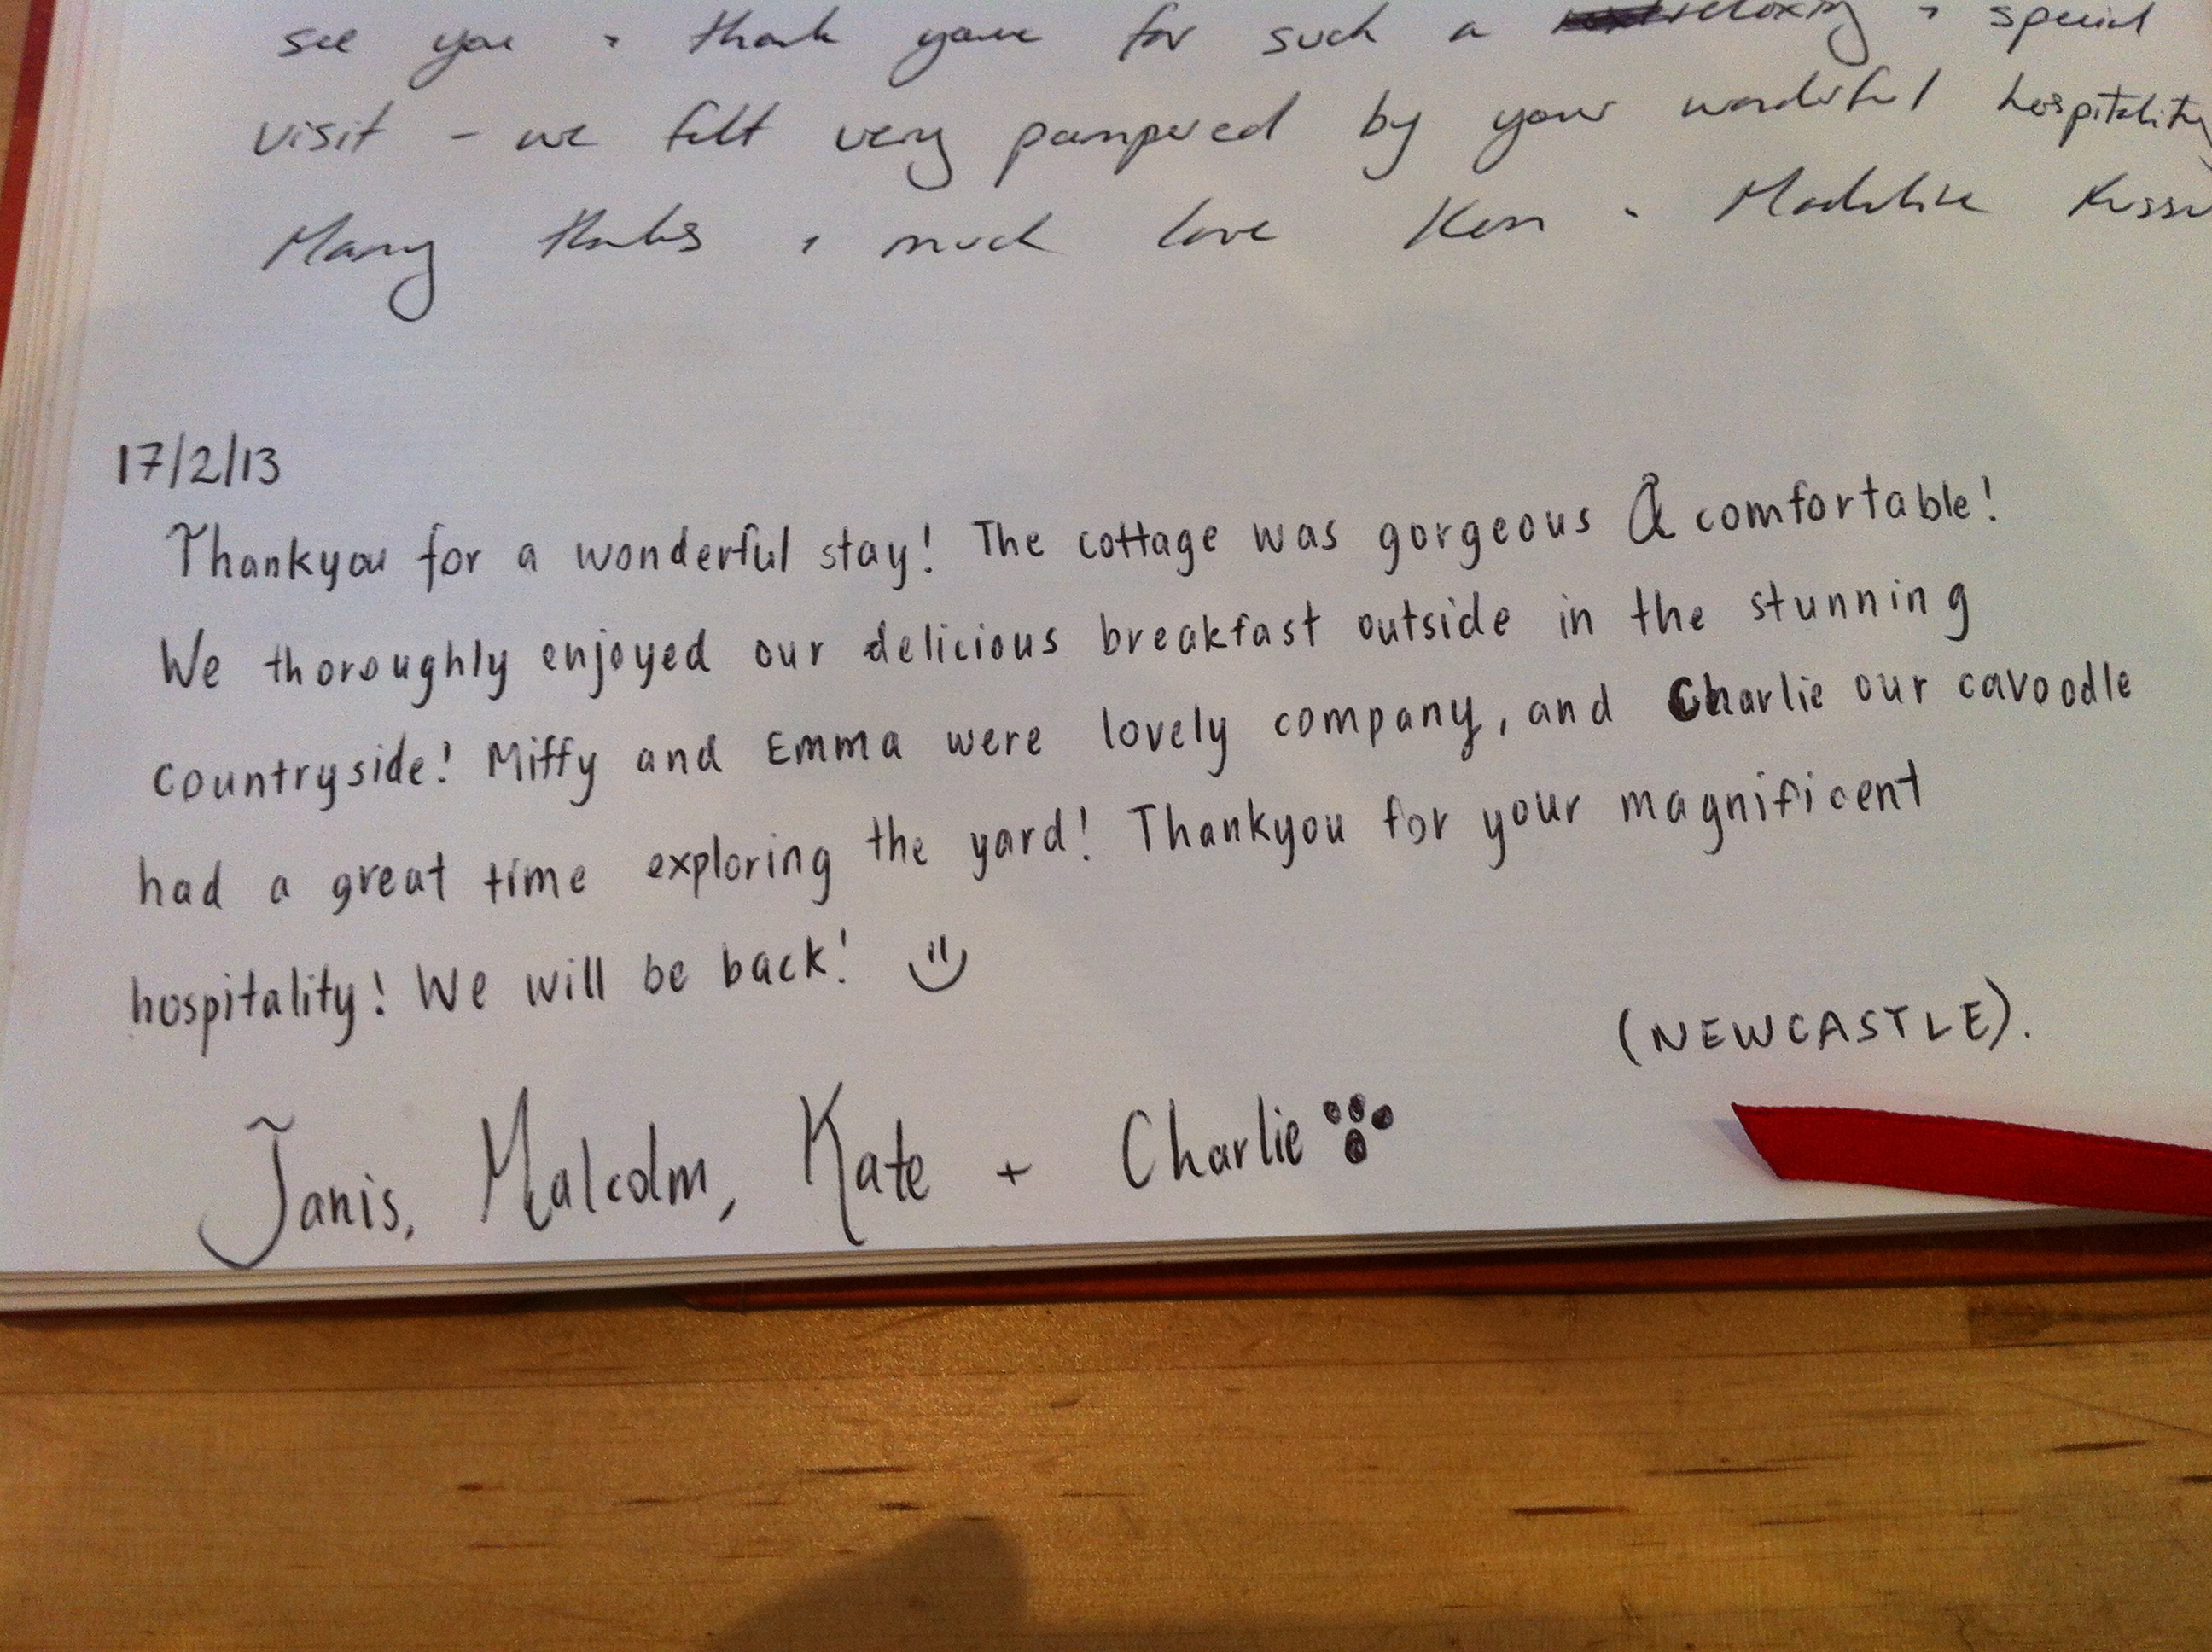 see you + thank you for such a relaxing + special
visit - we felt very pampered by your wonderful hospitality
Many thanks + much love Ken + Madeline
17/2/13
Thankyou for a wonderful stay! The cottage was gorgeous & comfortable!
We thoroughly enjoyed our delicious breakfast outside in the stunning
countryside! Miffy and Emma were lovely company, and Charlie our cavoodle
had a great time exploring the yard! Thankyou for your magnificent
hospitality! We will be back!
(NEWCASTLE).
Janis, Malcolm, Kate + Charlie